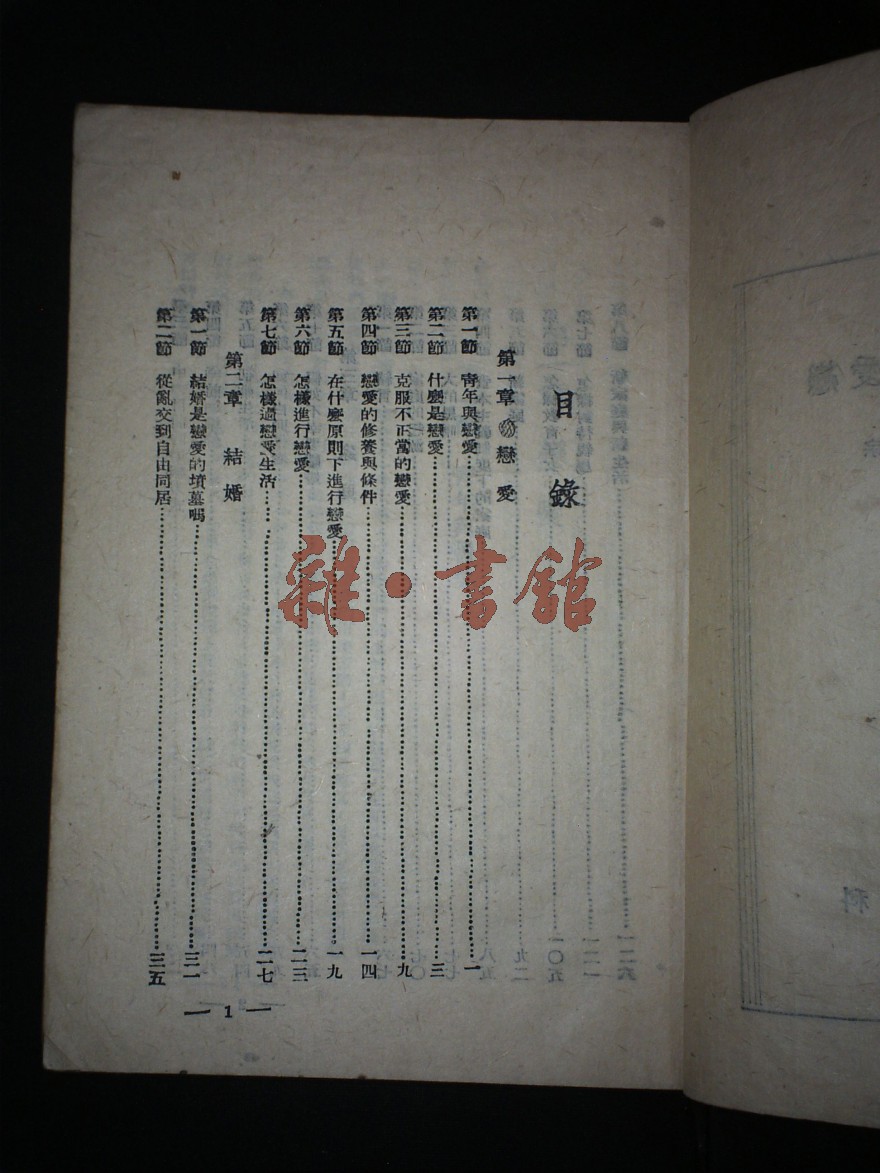 目錄
第一章 戀愛
第一節 靑年與戀愛……一
第二節 什麼是戀愛……三
第三節 克服不正當的戀愛……九
第四節 戀愛的修養與條件……一四
第五節 在什麼原則下進行戀愛……一九
第六節 怎樣進行戀愛……二三
第七節 怎樣過戀愛生活……二七
第二章 結婚
第一節 結婚是戀愛的墳墓嗎……三一
第二節 從亂交到自由同居……三五
— 1 —
雜·書館